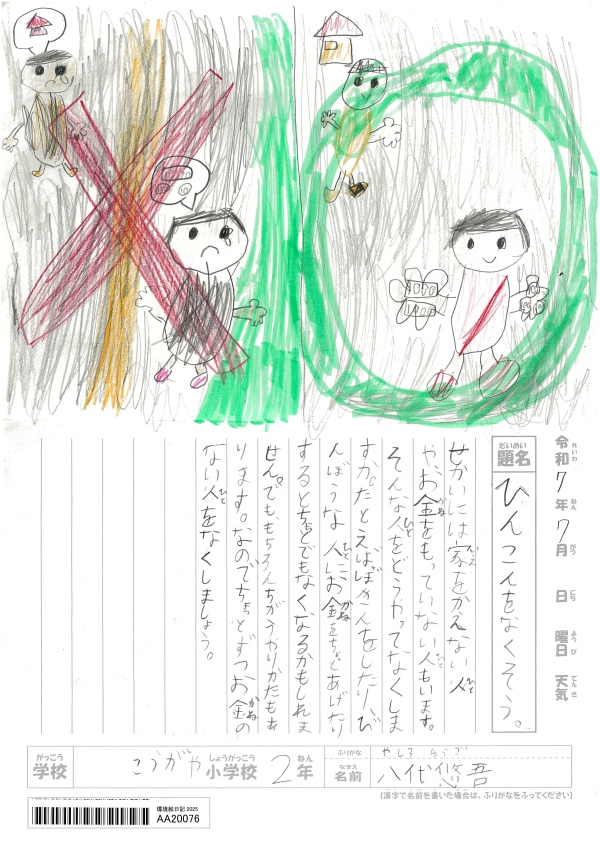 令和7年7月 日 曜日 天気
れいわ ねん がつ にち ようび てんき
だいめい
題名
ひんこんをなくそう。
せかいには家をかえない人
いえ ひと
や、お金をもっていない人もいます。
かね ひと
そんな人をどうやってなくしま
ひと
すか。たとえばぼきんをしたり、び
んぼうな人にお金をちょっとあげたり
ひと かね
するとちょっとでもなくなるかもしれま
せん。でももちろんちがうやりかたもあ
ります。なのでちょっとずつお金の
かね
ない人をなくしましょう。
ひと
がっこう
学校
こうがや小学校 2年
しょうがっこう ねん
ふりがな
やしろ
なまえ
名前
八代悠吾
(漢字で名前を書いた場合は、ふりがなをふってください)
環境絵日記 2025
AA20076